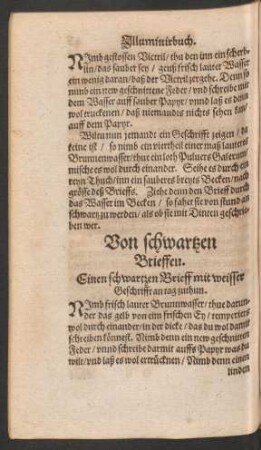 Illuminirbuch.
NImb gestossen Victril/ thu den inn ein scherb-
lin/ das sauber sey/ geuß frisch lauter Wasser
ein wenig daran/ daß der Victril zergehe. Denn so
nimb ein new geschnittene Feder/ vnd schreibe mit
dem Wasser auff sauber Papyr/ vnnd laß es denn
wol truckenen/ daß niemandts nichts sehen kan/
auff dem Papyr.
Wiltu nun jemandt ein Geschrifft zeigen/ da
keine ist/ so nimb ein viertheil einer maß lauters
Brunnenwasser/ thue ein loth Puluers Galerum/
mische es wol durch einander. Seihe es durch ein
reyn Thuch/ inn ein sauberes breytes Becken/ nach
grösse deß Brieffs. Ziehe denn den Brieff durch
das Wasser im Becken/ so fahet sie von stund an
schwartz zu werden/ als ob sie mit Dinten geschrie-
ben wer.
Von schwartzen
Brieffen.
Einen schwartzen Brieff mit weisser
Geschrifft an tag zuthun.
NImb frisch lauter Brunnwasser/ thue darun-
der das gelb von eim frischen Ey/ temperiers
wol durch einander/ in der dicke/ das du wol damit
schreiben könnest. Nimb denn ein new geschnitten
Feder/ vnnd schreibe darmit auffs Papyr was du
wilt/ vnd laß es wol ertrücknen/ Nimb denn einen
linden